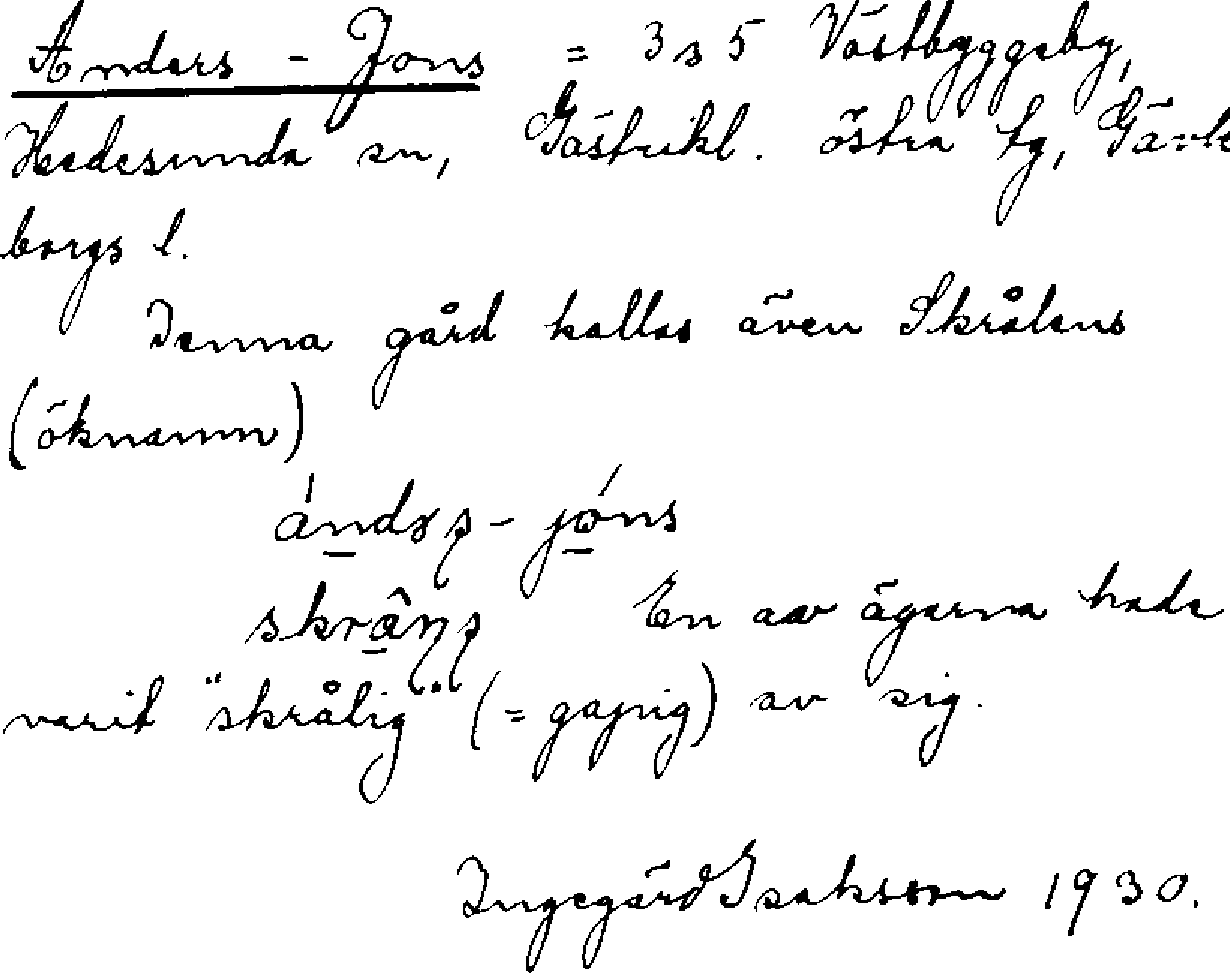 Anders - Jons = 3 s 5 Västbyggeby,
Hedesunda sn, Gästrikl. östra tg, Gävle
borgs l.
Denna gård kallas även Skrålens
(öknamn)
ándəʂ - jóns
skrâɳʂ En av ägarna hade
varit "skrålig" (= gapig) av sig.
Ingegärd Isaksson 1930.